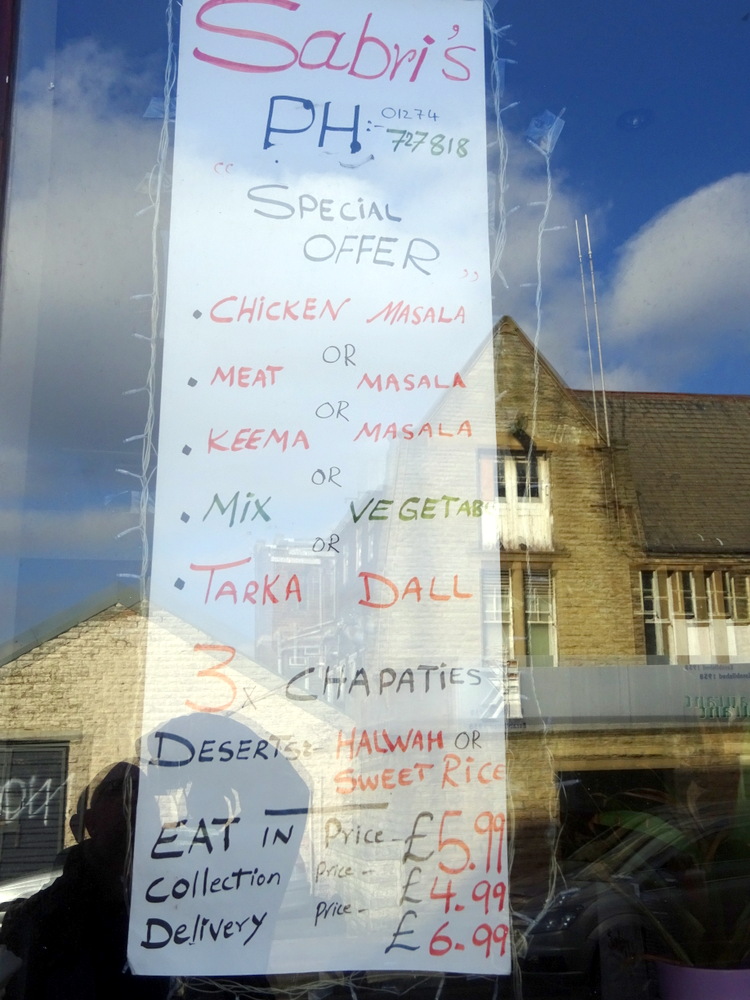 Sabri's
PH:- 01274
727818
“ SPECiAL
OFFER ”
• CHiCKEN MASALA
OR
• MEAT MASALA
OR
• KEEMA MASALA
OR
• MiX VEGETAB
OR
• TARKA DALL
3 x CHAPATiES
DESERTS:- HALWAH OR
SWEET RiCE
EAT IN Price - £5.99
Collection Price - £4.99
Delivery Price - £6.99